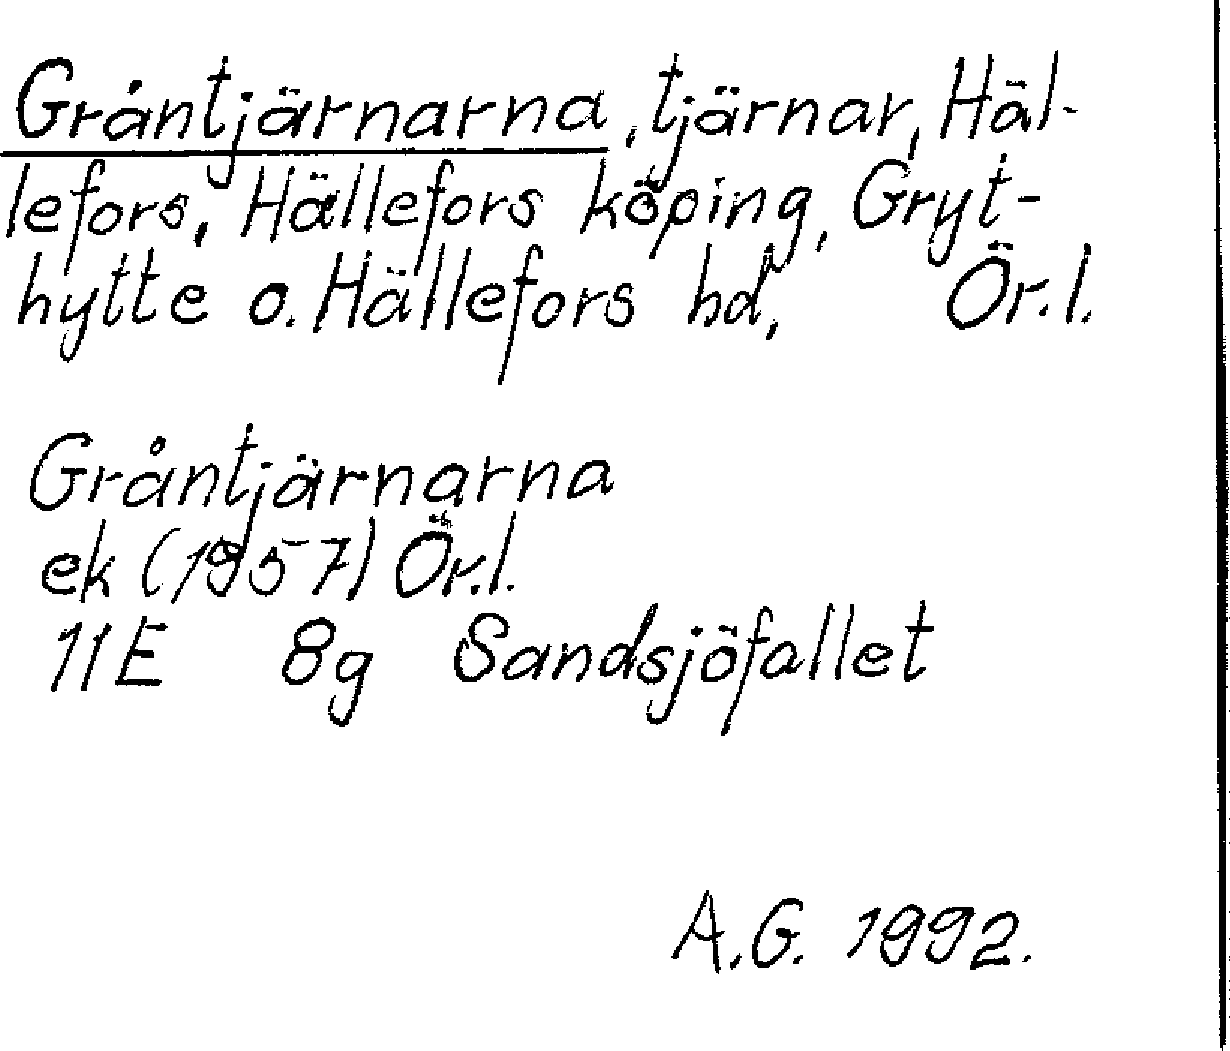 Gråntjärnarna, tjärnar, Häl-
lefors, Hällefors köping, Gryt-
hytte o. Hällefors hd, Ör. l.
Gråntjärnarna
ek (1957) Ör. l.
11E 8g Sandsjöfallet
A.G. 1992.